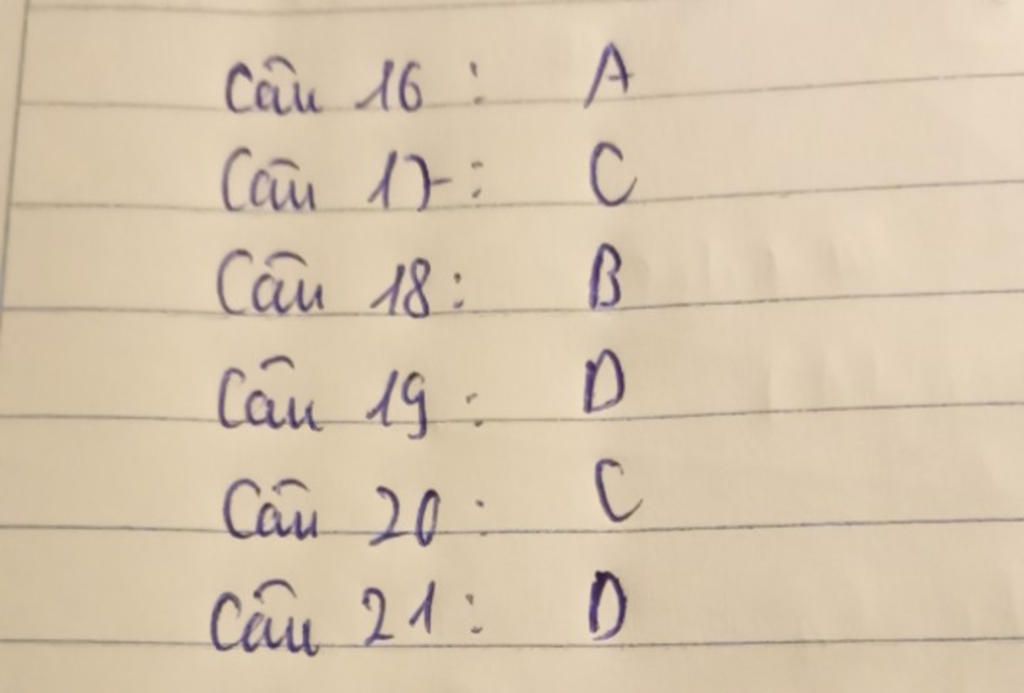 Câu 16 : A
Câu 17 : C
Câu 18 : B
Câu 19 : D
Câu 20 : C
Câu 21 : D